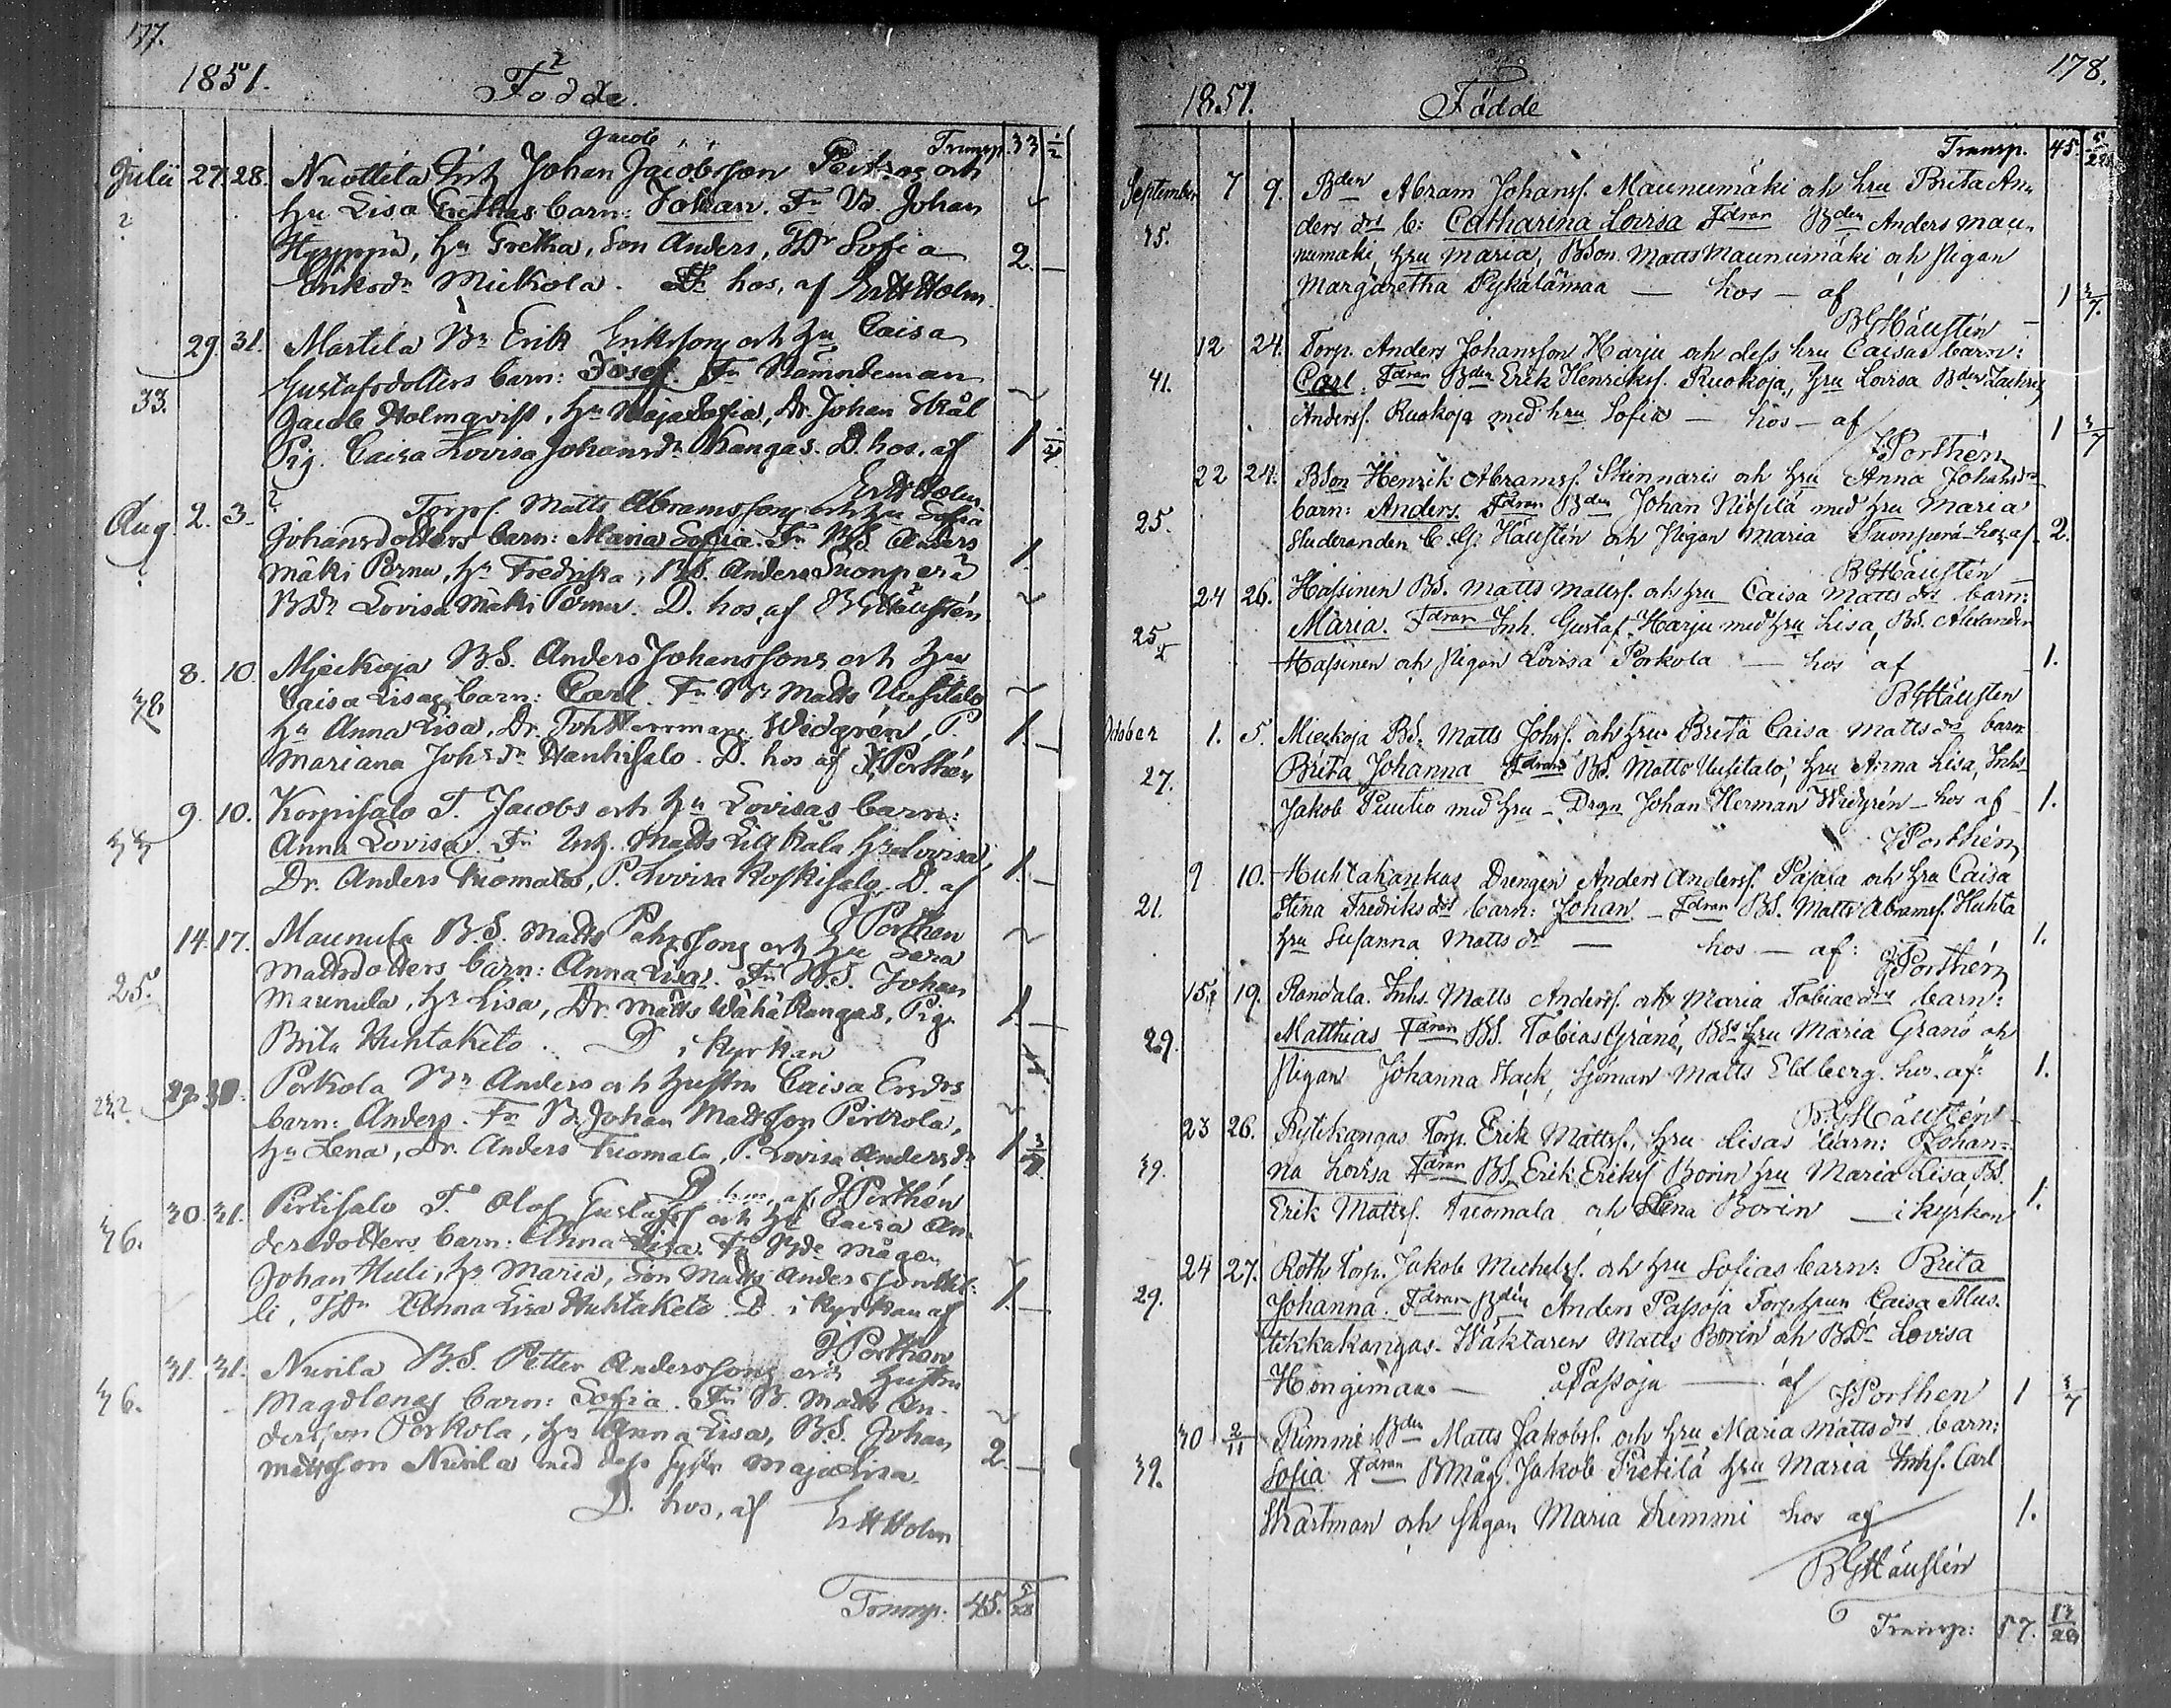 177.
1851. Födde.
Jacob Transp. 33 1/2
Julii 27. 28. Nuottila Inh Johan Jacobsson och
hu Lisa Grethas barn: Johan. Fr Bd Johan
Hyyppä, hu Gretha, Son Anders, TDr Sofia 2. –
Eriksdr Mickola. D. hos, af ErHHolm.
29. 31. Martila Br Erik Erikssons och hu Caisa
33. Gustafsdotters barn: Josef. Fr Nämndeman
Jacob Holmqvist, hu Maja Sofia, Dr. Johan Skål
Pig. Caisa Lovisa Johansdr Kangas. D. hos, af 1
ErHHolm
Aug. 2. 3. Torp. Matts Abramssons och hu Sofia
Johansdotters barn: Maria Sofia. Fr BS. Anders
Mäki Pernu, hu Fredrika, BS. Anders Suonperä 1.
BDr Lovisa Mäki Pernu. D. hos, af BGHäusten
8. 10. Mjeikoja B.S. Anders Johanssons och hu
38 Caisa Lisas barn: Carl. Fr Br Matts Uusitalo
hu Anna Lisa, Dr. Joh Herrman Widgrén, P. 1. –
Mariana Johsdr Hanhisalo. D. hos af JPorthén
9. 10. Korpisalo T. Jacobs och hu Lovisas barn:
Anna Lovisa. Fr Inh. Matts hu Lovisa,
Dr. Anders Tuomala, P. Lovisa Koskisalo. D. af 1. –
JPorthén
14. 17. Maunula B.S. Matts och hu Sara
25. Mattsdotters barn: Anna Lisa. Fr BS. Johan
Maunula, hu Lisa, Dr. Matts Wähä Kangas, Pig. 1. –
Brita Huhtaketo. D i Kyrkan
29 30. Porkola Br Anders och hustru Caisa Ersdrs
barn: Anders. Fr B. Johan Mattsson Pirkola,
hu Lena, Dr. Anders Tuomala, P. Lovisa Andersdr 1 3/7
D. hos, af JPorthén
30. 31. Pirtisalo T. Olof Gustafss och hu Caisa An-
36. dersdotters barn: Anna Lisa. Fr Bde Mågen
Johan Huli, hu Maria, Son Matts Andersson
li, TDr Anna Lisa Huhtaketo. D. i Kyrkan af 1. –
JPorthén
31. 31. Nuvila B.S. Petter Anderssons och hustru
36. Magdlenas barn: Sofia. Fr B. Matts An-
dersson Porkola, hu Anna Lisa, B.S. Johan
Mattsson Nuvila med dess syster Maja Lisa 2. –
D. hos, af ErHHolm
Transp. 45. 5/28
178.
1851. Födde
Transp. 45. 5/28
September 7 9. Bden Abram Johanss. Maunumäki och hru Brita An-
45. ders drs b: Catharina Lovisa Fdran Bden Anders Mau-
numäki, hru Maria, BSon. Matts Maunumäki och Pigan
Margaretha Pykälämaa – hos – af 1 3/7
BGHäusten
12 24. Torp. Anders Johansson Harju och dess hru Caisas barn:
41. Carl. Fdran Bden Erik Henrikss. Ruokoja, hru Lovisa Bden Zachris
Anderss. Ruokoja med hru Sofia – hos – af 1 3/7
JPorthén
22 24. BSon Henrik Abramss. Skinnaris och hru Anna Johansdrs
25. barn: Anders. Fdran Bden Johan Nissilä med hru Maria
studeranden C.G. Häustén och Pigan Maria Suonperä – hos af 2.
BGHäustén
24 26. Hassinen BS. Matts Mattss. och hru Caisa Matts drs barn:
25 Maria. Fdran Inh. Gustaf Harju med hru Lisa, BS. Alexander
Hassinen och Pigan Lovisa Porkola – hos af 1.
BGHäusten
October 1. 5. Mieikoja BS. Matts Johss. och hru Brita Caisa Matts drs barn
27. Brita Johanna Fdran BS. Matts Uusitalo, hru Anna Lisa, Inhs
Jakob Puutio med hru – Drgn Johan Herman Widgrén – hos af 1.
JPorthén
9 10. Huhtakangas Drengen Anders Anderss. Pajala och hru Caisa
21. Stina Fredriks drs barn: Johan – Fdran BS. Matts Abramss. Huhta
hru Susanna Matts dr – hos – af: 1.
JPorthén
15. 19. Randala. Inhs. Matts Anderss. och Maria Tobiae drs barn:
29. Matthias Fdran BS. Tobias Granö, BSs hru Maria Granö och
Pigan Johanna Stack, Sjöman Matts Eldberg. hos. af: 1.
BGHäustén
23 26. Rytikangas Torp. Erik Mattss., hru Lisas barn: Johan-
39. na Lovisa Fdran BS. Erik Erikss Borin hru Maria Lisa, BS.
Erik Mattss. Tuomala och Lena Borin – i kyrkan 1.
24 27. Roth Torp. Jakob Michelss. och hru Sofias barn: Brita
29. Johanna. Fdran Bden Anders Passoja Torphrun Caisa Mus-
tikkakangas. Wäktaren Matts Borin och BDr Lovisa
Hongimaa. – å Passoja – af JPorthen 1 3/7
30 2/11 Rimmi Bden Matts Jakobss. och hru Maria Matts drs barn:
39. Sofia Fdran BMåg. Jakob Pietilä hru Maria Inhs. Carl
Skartman och Pigan Maria Rimmi hos af 1.
BGHäustén
Transp: 57. 13/28